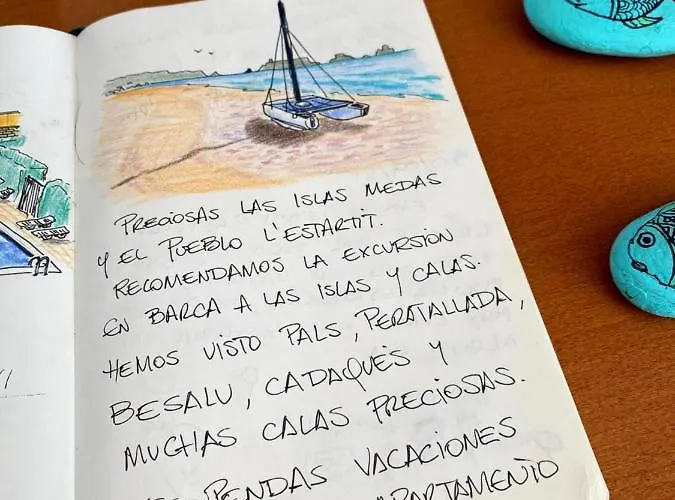 PRECIOSAS LAS ISLAS MEDAS
Y EL PUEBLO L'ESTARTIT.
RECOMENDAMOS LA EXCURSIÓN
EN BARCA A LAS ISLAS Y CALAS.
HEMOS VISTO PALS, PERATALLADA,
BESALU, CADAQUÉS Y
MUCHAS CALAS PRECIOSAS.
VACACIONES
APARTAMENTO